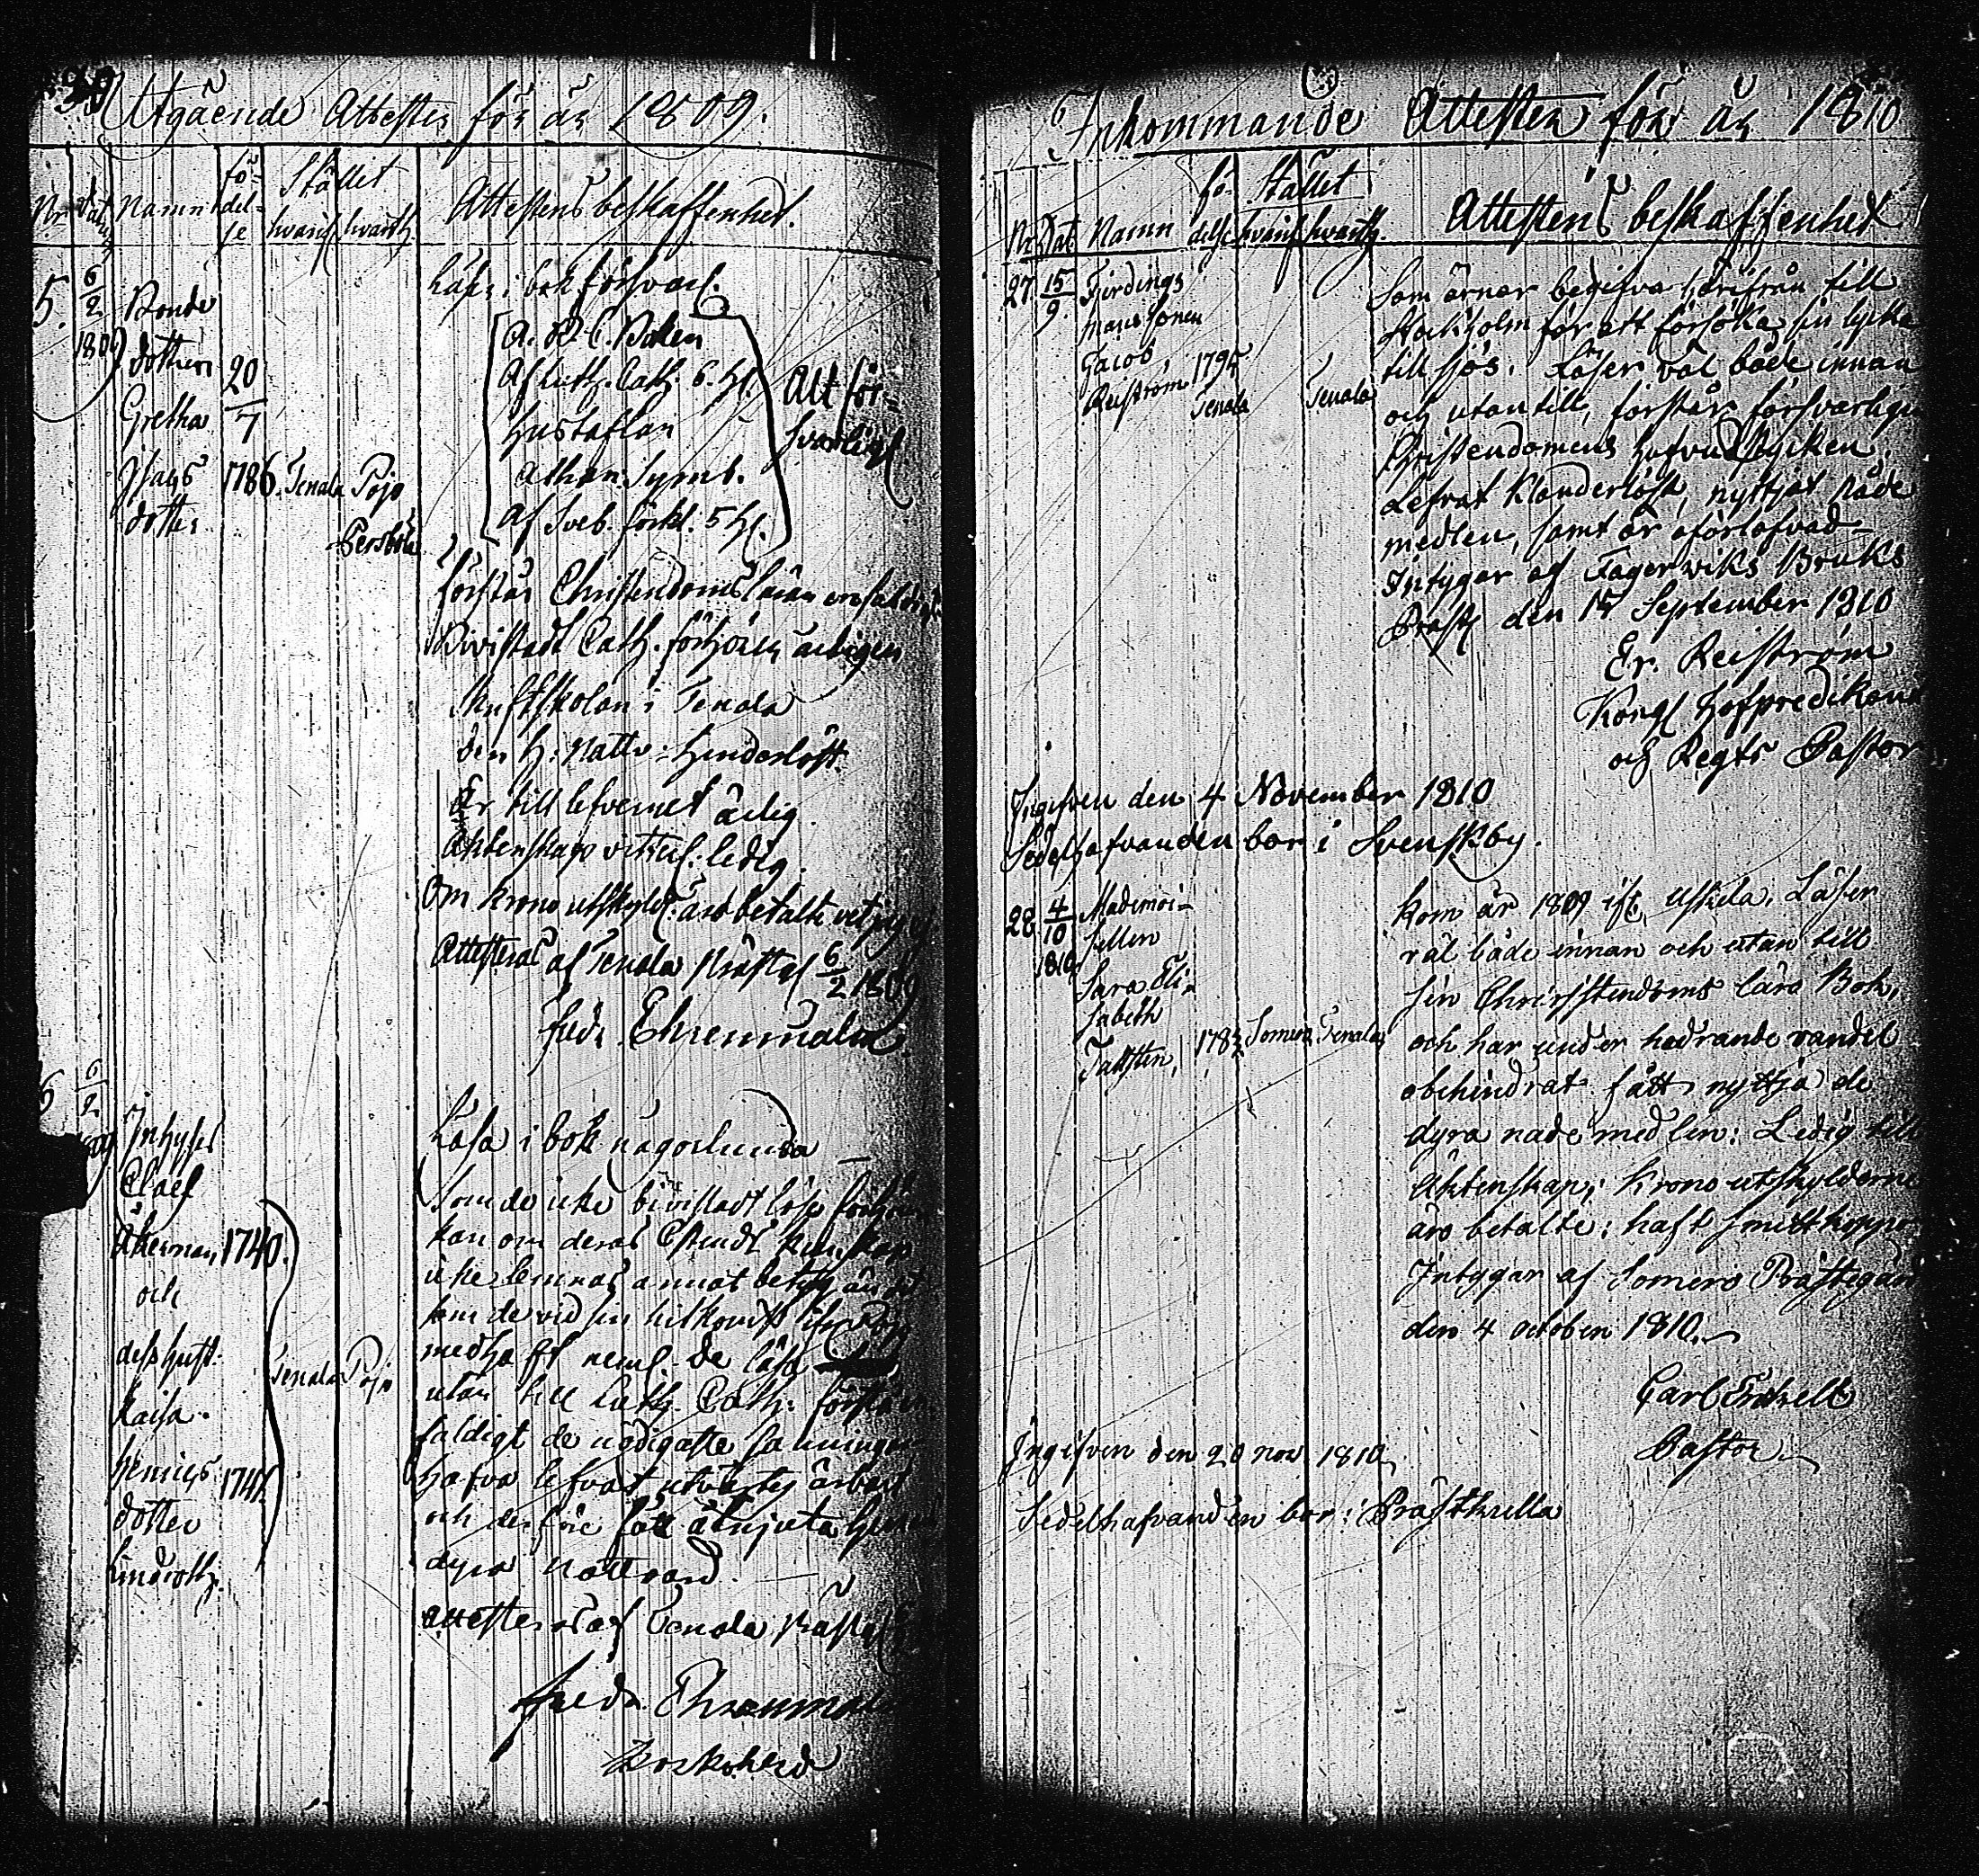 Utgående Attester för år 1809.
Nr Dat. Namn fö-del-se Stället hvarifr. hvarth. Attestens beskaffenhet.
5. 6/2 1809
Bonde
dottren
Gretha
Isacs
dotter
20/7
1786. Tenala Pojo
Persböle
Läser i bok försvarl.
A. B. C. Boken
Af Luth. Cath. 6. H.
Hustaflan
Athan. Symb.
Af Sveb. förkl. 5 H.
Allt för-
svarligt
förstår Christendoms läran
Bivistadt Cath. förhören årligen
Skriftskolan i Tenala
den H. Nattv: hinderlöst.
Är till lefvernet ärlig.
Äktenskap vitterl. ledig.
Om krono utskyld. äro betalte vet jag ej
Attesteras af Tenala Prästg. 6/2 1809
Fredr. Ehrenmalm
6 6/2 1809
Inhyses
Claes
Åkerman, 1740.
och
dess hust:
Kaisa
Henrics
dotter
Lindroth. 1741.
Tenala Pojo
Läsa i bok någorlunda
Som de icke bivistadt läse förhör
kan om deras Christend. kunskap
icke lemnas annat betyg än det
som de vid sin hitkomst ifr. Pojo
medhaft neml. De läsa
utan till Luth. Cath. förstå en-
faldigt de nödigaste sanningar
hafva lefvat utvärtes ärbart
och derföre fått åtnjuta Herrens
dyra Nattvard.
Attesteras af Tenala Prästg.
Fredr. Ehrenmalm
Kyrkoherde
Inkommande Attester för år 1810
Nr Dat. Namn fö-delse Stället hvarifr. hvarth. Attestens beskaffenhet
27. 15/9.
Fjerdings
mans sonen
Jacob
Reiström 1795
Tenala Tenala
Som ärnar begifva härifrån till
Stockholm för att försöka sin lycka
till sjös. Läser väl både innan
och utantill, förstår försvarligen
Christendomens hufvudstycken.
Lefvat klanderlöst, nyttjat nåde
medlen, samt är oförlofvad
Intygar af Fagerviks Bruks
Prästg. den 15 September 1810
Er. Reiström
Kongl Hofpredikant
och Regts Pastor
Ingifven den 4 November 1810
Sedelhafvanden bor i Svenskby.
28. 4/10 1810
Mademoi-
sellen
Sara Eli-
sabeth
Tallsten, 1783 Somero Tenala
Kom år 1809 ifr. Uskela. Läser
väl både innan och utan till
sin Christendoms lära Bok,
och har under hedrande vandel
obehindrat fått nyttja de
dyra nådemedlen: Ledig till
Äktenskap: Krono utskylderna
äro betalte: haft smittkoppor
Intygar af Somero Prästegård
den 4 october 1810.
Carl Enkell
Pastor
Ingifven den 20 nov. 1810
Sedelhafvanden bor i Prästkulla